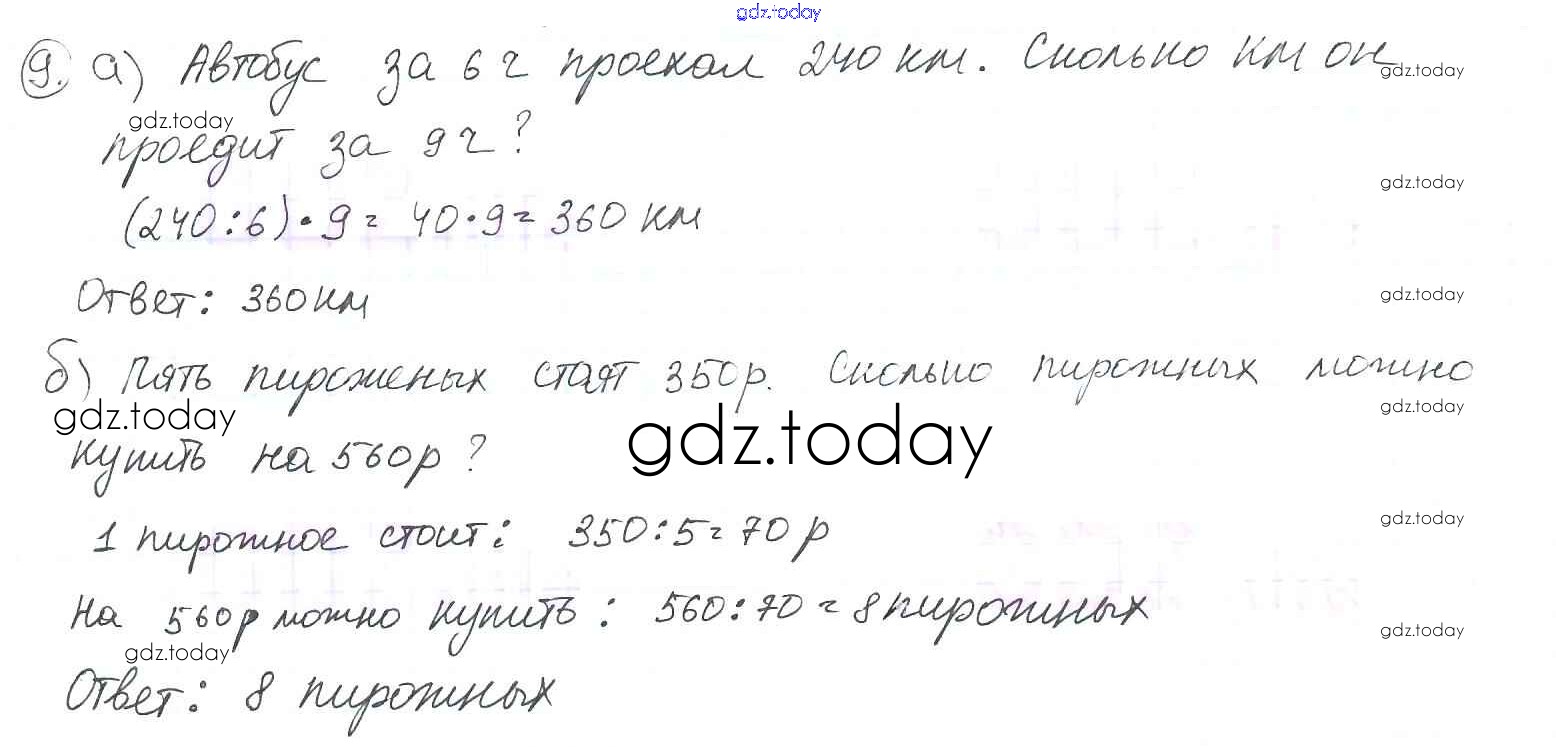 gdz.today
9. а) Автобус за 6 ч проехал 240 км. Сколько км он
gdz.today
gdz.today
проедит за 9 ч?
gdz.today
(240:6)·9= 40·9= 360 км
Ответ: 360 км
gdz.today
б) Пять пироженых стоят 350р. Сколько пирожных можно
gdz.today
gdz.today
gdz.today
купить на 560р?
1 пирожное стоит: 350:5= 70 р
gdz.today
На 560р можно купить: 560:70 = 8 пирожных
gdz.today
gdz.today
Ответ: 8 пирожных